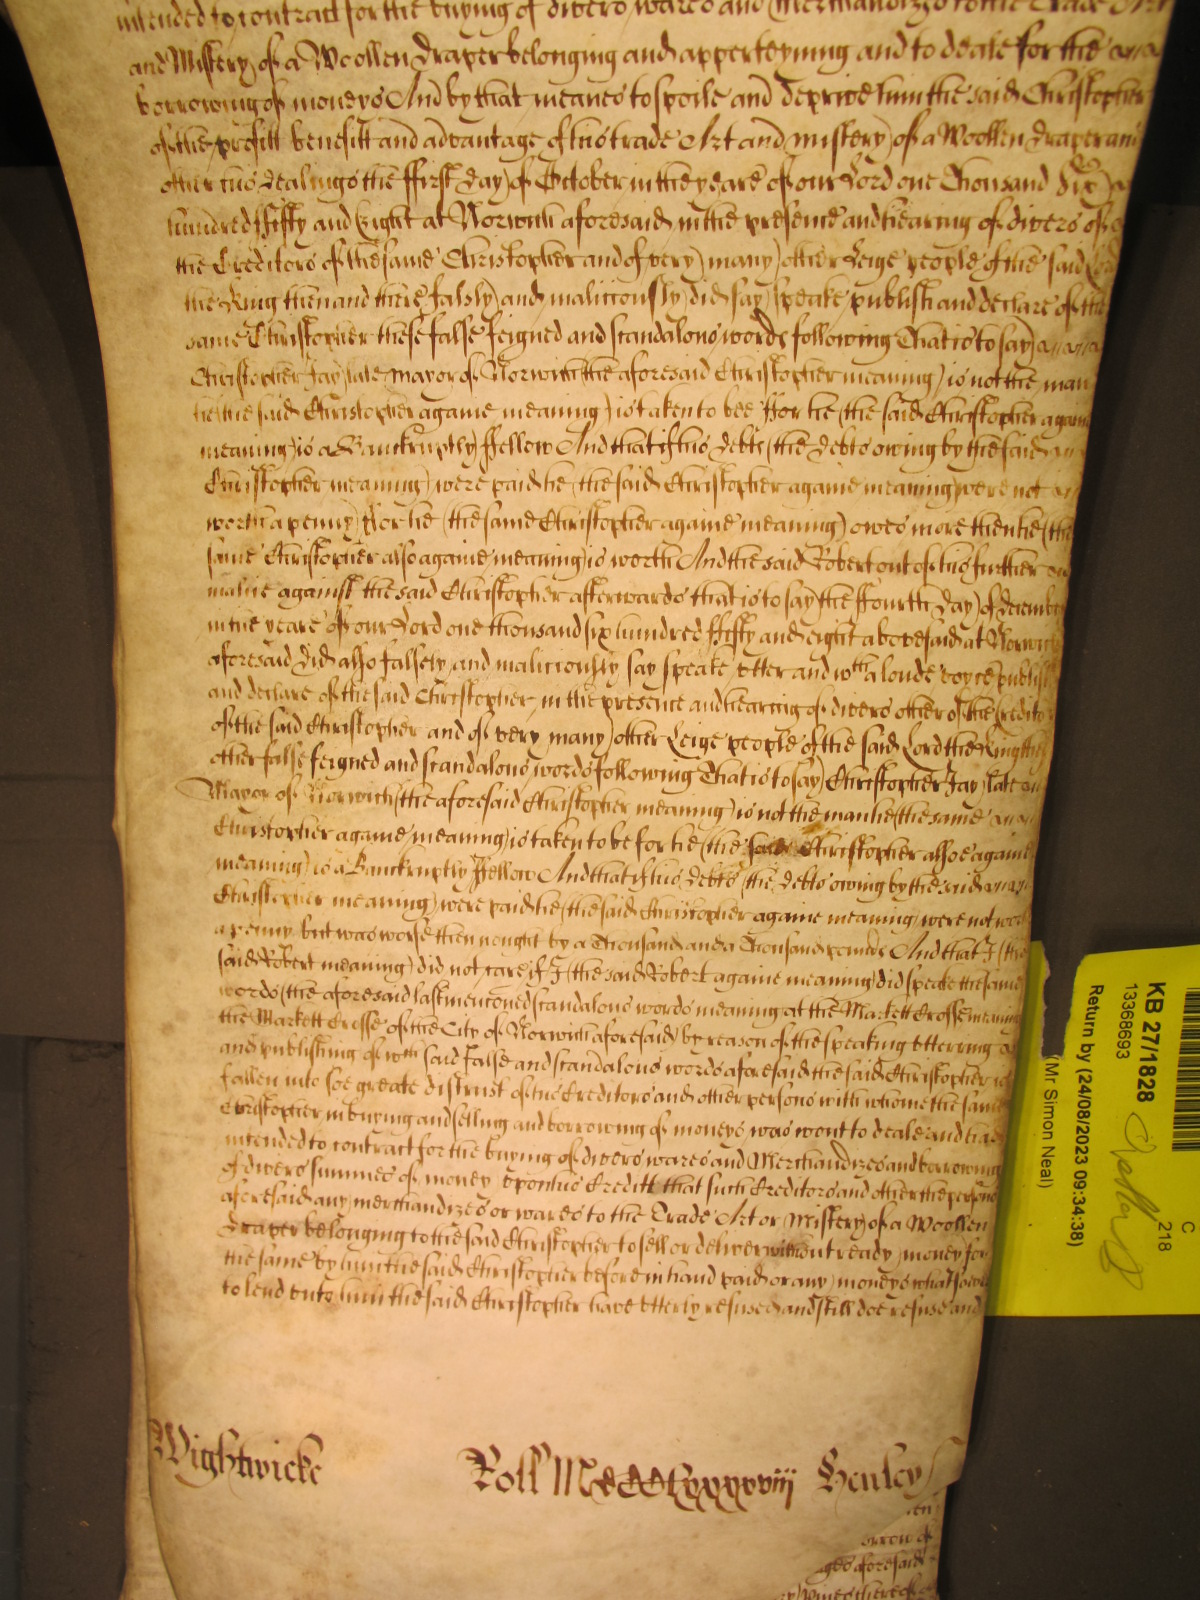 intended to contract for the buying of divers wares and Merchandizes to the Trade Art
and Mistery of a Woollen draper belonging and apperteyning and to deale for the
borrowing of moneys And by that meanes to spoile and deprive him the said Christopher
of the profitt benefitt and advantage of his trade Art and mistery of a Woollen draper and
other his dealings the ffirst day of October in the yeare of our Lord one Thousand Six
hundred ffifty and Eight at Norwich aforesaid in the presence and hearing of divers of
the Creditors of the same Christopher and of very many other Leige people of the said Lord
the King then and there falsly and malitiously did say speake publish and declare of the
same Christopher these false feigned and scandalous words following That is to say
Christopher Jay late Mayor of Norwich (the aforesaid Christopher meaning) is not the man
he (the said Christopher againe meaning) is taken to bee Ffor he (the said Christopher againe
meaning) is a Banckruptly ffellow And that if his debts (the debts owing by the said
Christopher meaning) were paid he (the said Christopher againe meaning) were not
worth a penny Ffor he (the same Christopher againe meaning) owes more then he (the
same Christopher also againe meaning) is worth And the said Robert out of his further
malice against the said Christopher afterwards that is to say the ffourth day of december
in the yeare of our Lord one thousand six hundred ffifty and eight abovesaid at Norwich
aforesaid did also falsely and maliciously say speake utter and wth a loude voyce publish
and declare of the said Christopher in the presence and hearing of divers other of the Creditors
of the said Christopher and of very many other Leige people of the said Lord the King these
other false feigned and scandalous words following That is to say Christopher Jay late
Mayor of Norwich (the aforesaid Christopher meaning) is not the man he (the same
Christopher againe meaning) is taken to be for he (the said Christopher also againe
meaning) is a Banckruptly ffellow And that if his debts (the debts owing by the said
Christopher meaning) were paid he (the said Christopher againe meaning) were not worth
a penny but was worse then nought by a Thousand and a Thousand pounds And that I (the
said Robert meaning) did not care if I (the said Robert againe meaning) did speake the same
words (the aforesaid last mentioned scandalous words meaning) at the Markett Crosse (meaning
the Markett Crosse of the City of Norwich aforesaid) by reason of the speaking uttering
and publishing of wch said false and scandalous words aforesaid the said Christopher is
fallen into soe greate distrust of his Creditors and other persons with whome the same
Christopher in buying and selling and borrowing of moneys was wont to deale and had
intended to contract for the buying of divers wares and Merchandizes and borrowing
of divers summes of money upon his Creditt that such Creditors and other the persons
aforesaid any merchandizes or wares to the Trade Art or Mistery of a Woollen
draper belonging to the said Christopher to sell or deliver without ready money for
the same by him the said Christopher before in hand paid or any moneys whatsoever
to lend unto him the said Christopher have utterly refused and still doe refuse and
Wightwicke Roll MDCCCLxxxxviii Henley
aforesaid
KB 27/1828
13368693
C
218
Return by (24/08/2023 09:34:38)
(Mr Simon Neal)